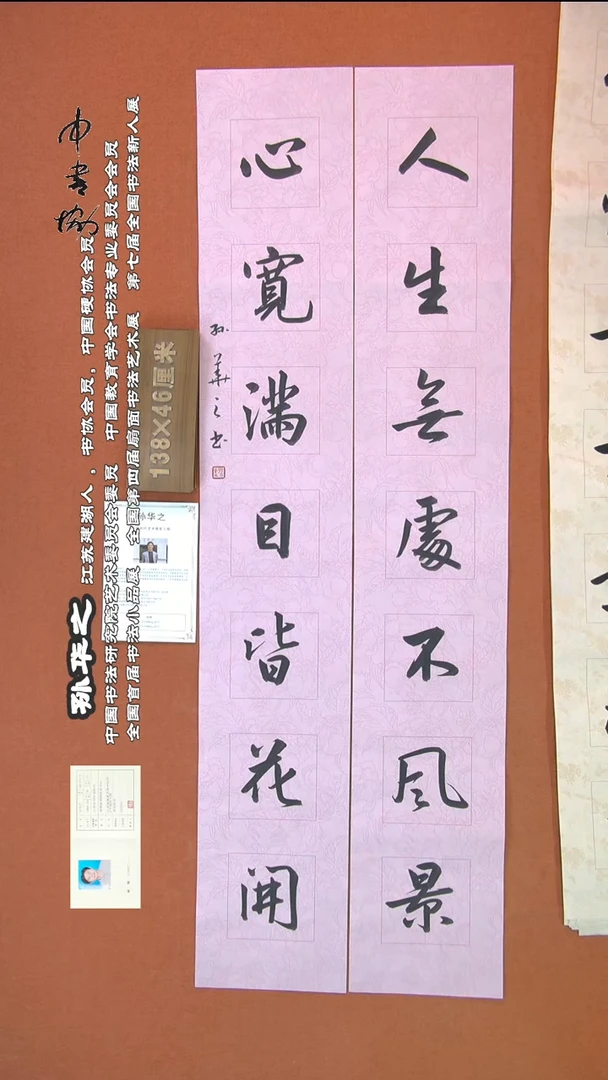 人生無處不風景
心寬满目皆花開
孙華之书
138×46厘米
孙华之
孙华之 江苏建湖人，书协会员，中国硬协会员
中国书法研究院艺术委员会委员 中国教育学会书法专业委员会会员
全国首届书法小品展 全国第四届扇面书法艺术展 第七届全国书法新人展